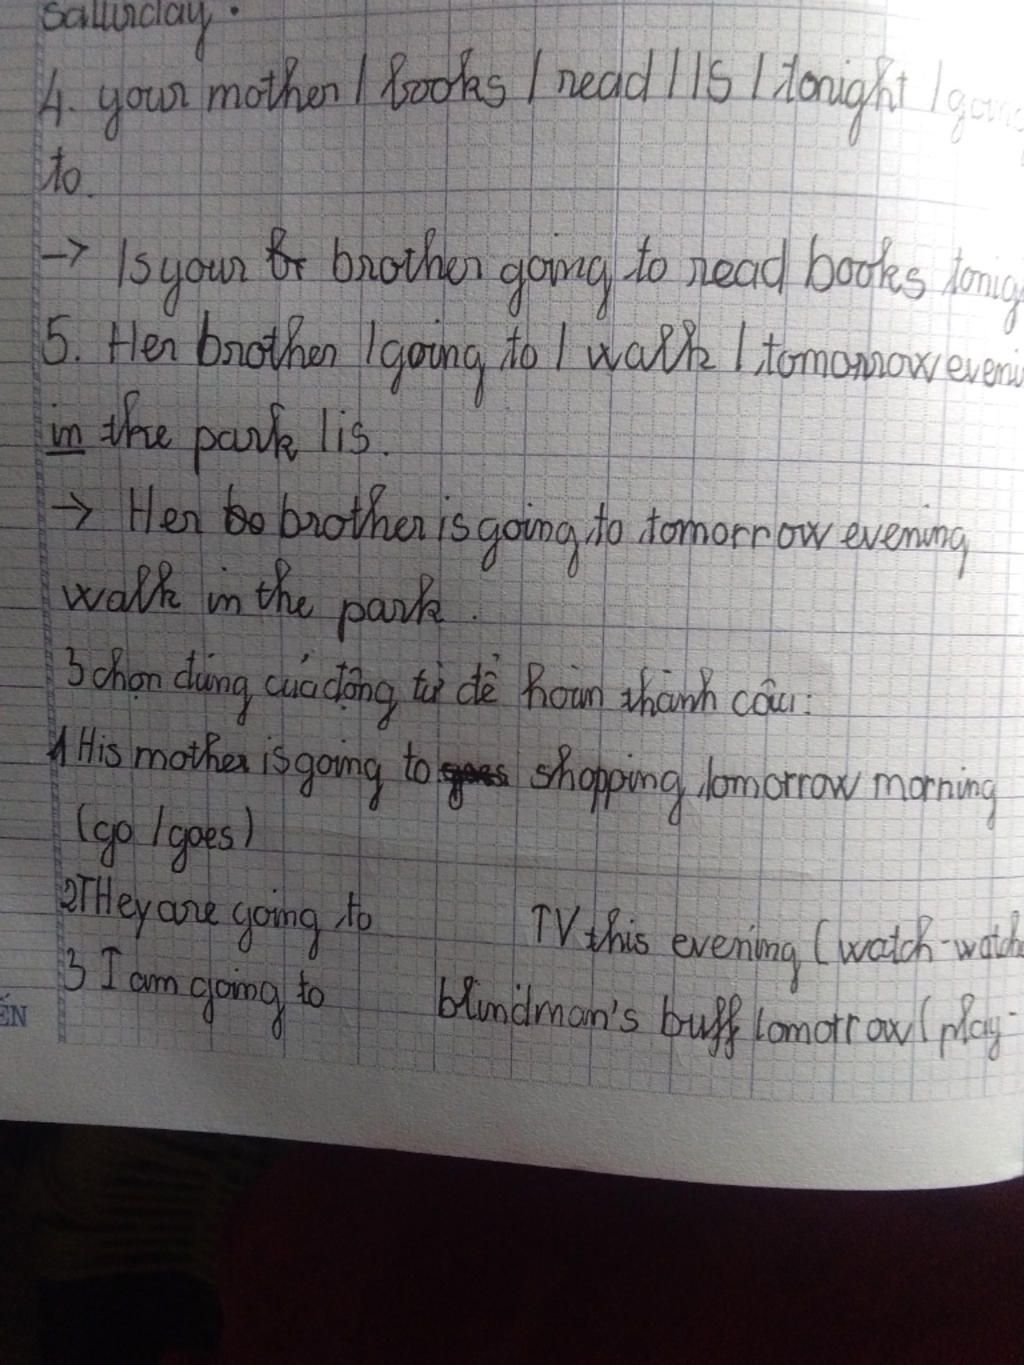 Saturday.
4. your mother / books / read / IS / tonight / going
to.
→ Is your br brother going to read books tonig
5. Her brother / going to / walk / tomorrow eveni
in the park / is.
→ Her bo brother is going to tomorrow evening
walk in the park.
3 chọn dúng cuả dộng từ dể hoàn thành câu:
1 His mother is going to goes shopping tomorrow morning
(go / goes)
2 THey are going to TV this evening (watch - watch
3 I am going to blindman's buff tomorrow (play -
ẾN